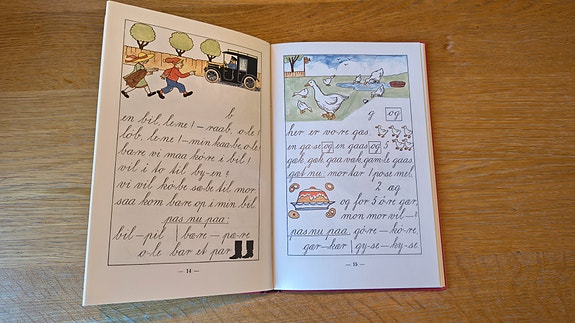 b
en bil, le-ne! — raab, o-le!
løb, le-ne! — min kaa-be, o-le
bare vi maa kø-re i bil!
vil i to til by-en?
vi vil kø-be sø-be til mor,
saa kom bare op i min bil
pas nu paa:
bil — pil bæ-re — pæ-re
o-le bar et par
— 14 —
g og
her er vo-re gæs.
en ga-se og en gaas og 5
gæk, gæk, gaa væk, gam-le gaas.
gæt nu: mor tar 1 pose mel,
2 æg
og for 5 ø-re gær,
mon mor vil — ?
pas nu paa: gø-re — kø-re,
gær — kær gy-se — ky-se.
— 15 —